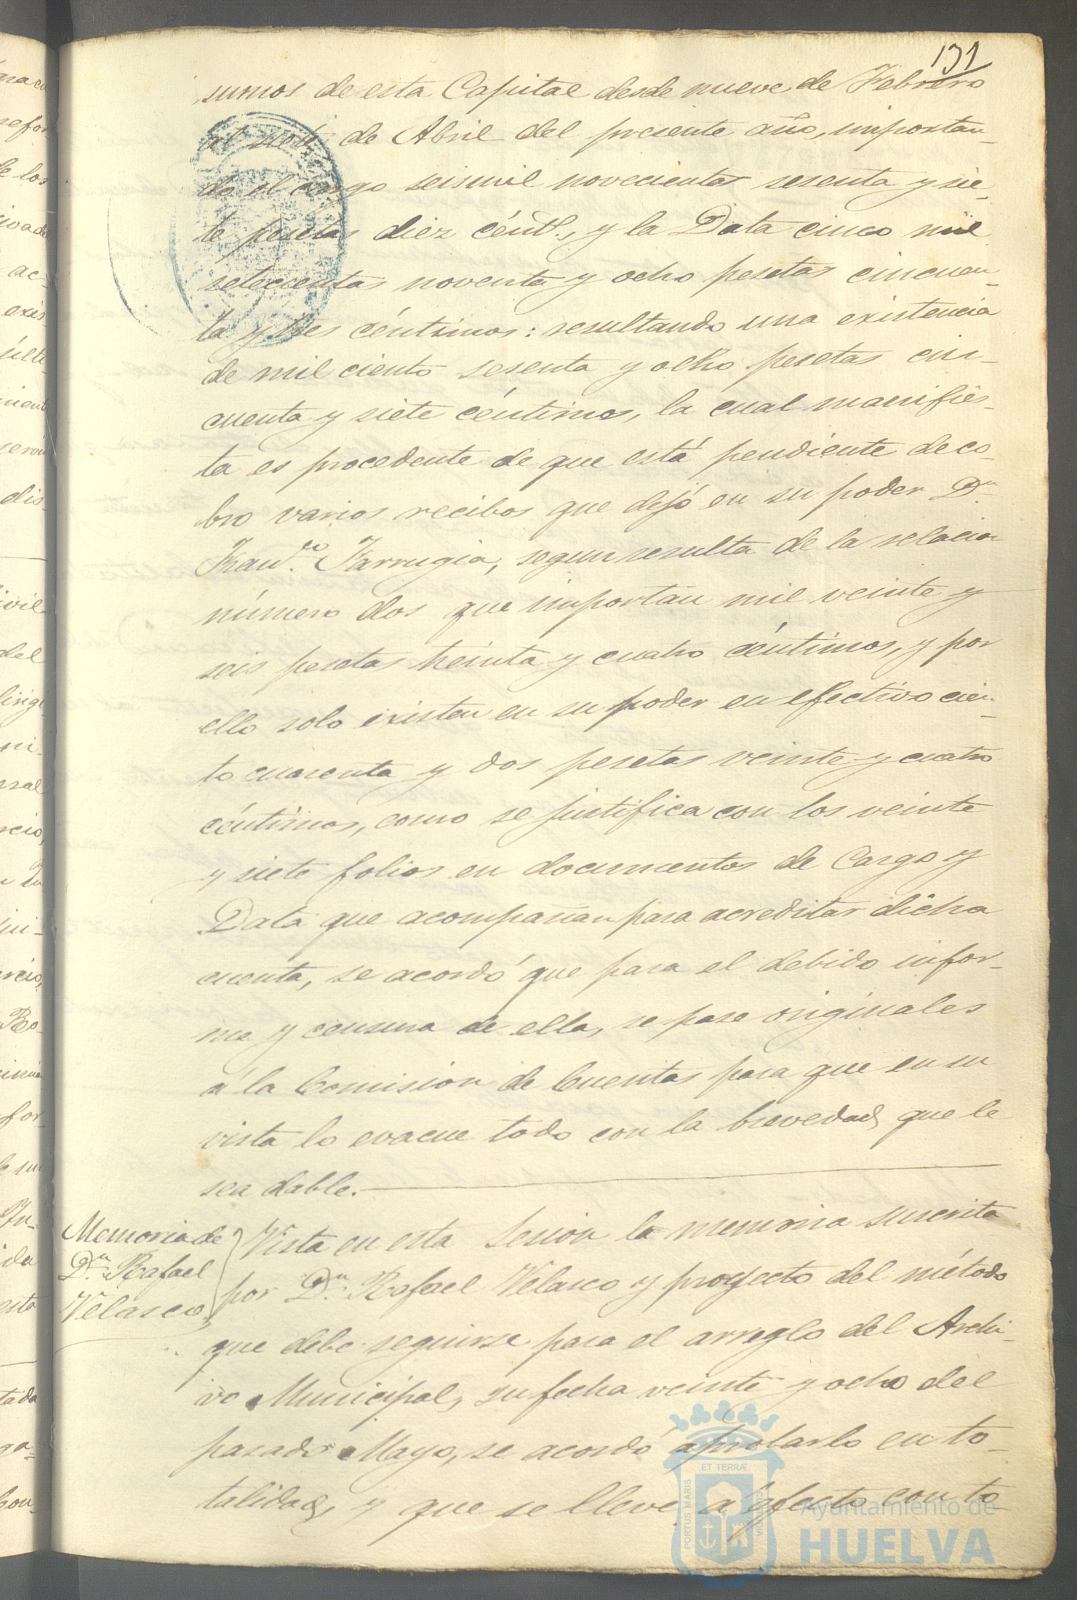 131
sumos de esta Capital desde nueve de Febrero
al de Abril del presente año, importan-
do el cargo seis mil novecientas sesenta y sie-
te pesetas diez cénts., y la Data cinco mil
setecientas noventa y ocho pesetas cincuen-
ta y tres céntimos: resultando una existencia
de mil ciento sesenta y ocho pesetas cin-
cuenta y siete céntimos, la cual manifies-
ta es procedente de que está pendiente de co-
bro varios recibos que dejó en su poder Dn.
Franco. Farrugia, segun resulta de la relacion
número dos que importan mil veinte y
seis pesetas treinta y cuatro céntimos, y por
ello solo existen en su poder en efectivo cien-
to cuarenta y dos pesetas veinte y cuatro
céntimos, como se justifica con los veinte
y siete folios en documentos de Cargo y
Data que acompañan para acreditar dicha
cuenta, se acordó que para el debido infor-
me y censura de ella, se pase originales
á la Comision de Cuentas para que en su
vista lo evacue todo con la brevedad que le
sea dable.
Memoria de
Dn. Rafael
Velasco
Vista en esta Sesion la memoria suscrita
por Dn. Rafael Velasco y proyecto del método
que debe seguirse para el arreglo del Archi-
vo Municipal, su fecha veinte y ocho del
pasado Mayo, se acordó aprobarlo en to-
talidad, y que se lleve a efecto con to
PORTUS MARIS ET TERRÆ CUSTODIA
Ayuntamiento de
HUELVA